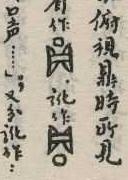 俯視鼎時所見
有作 訛作
口声……」又分訛作：